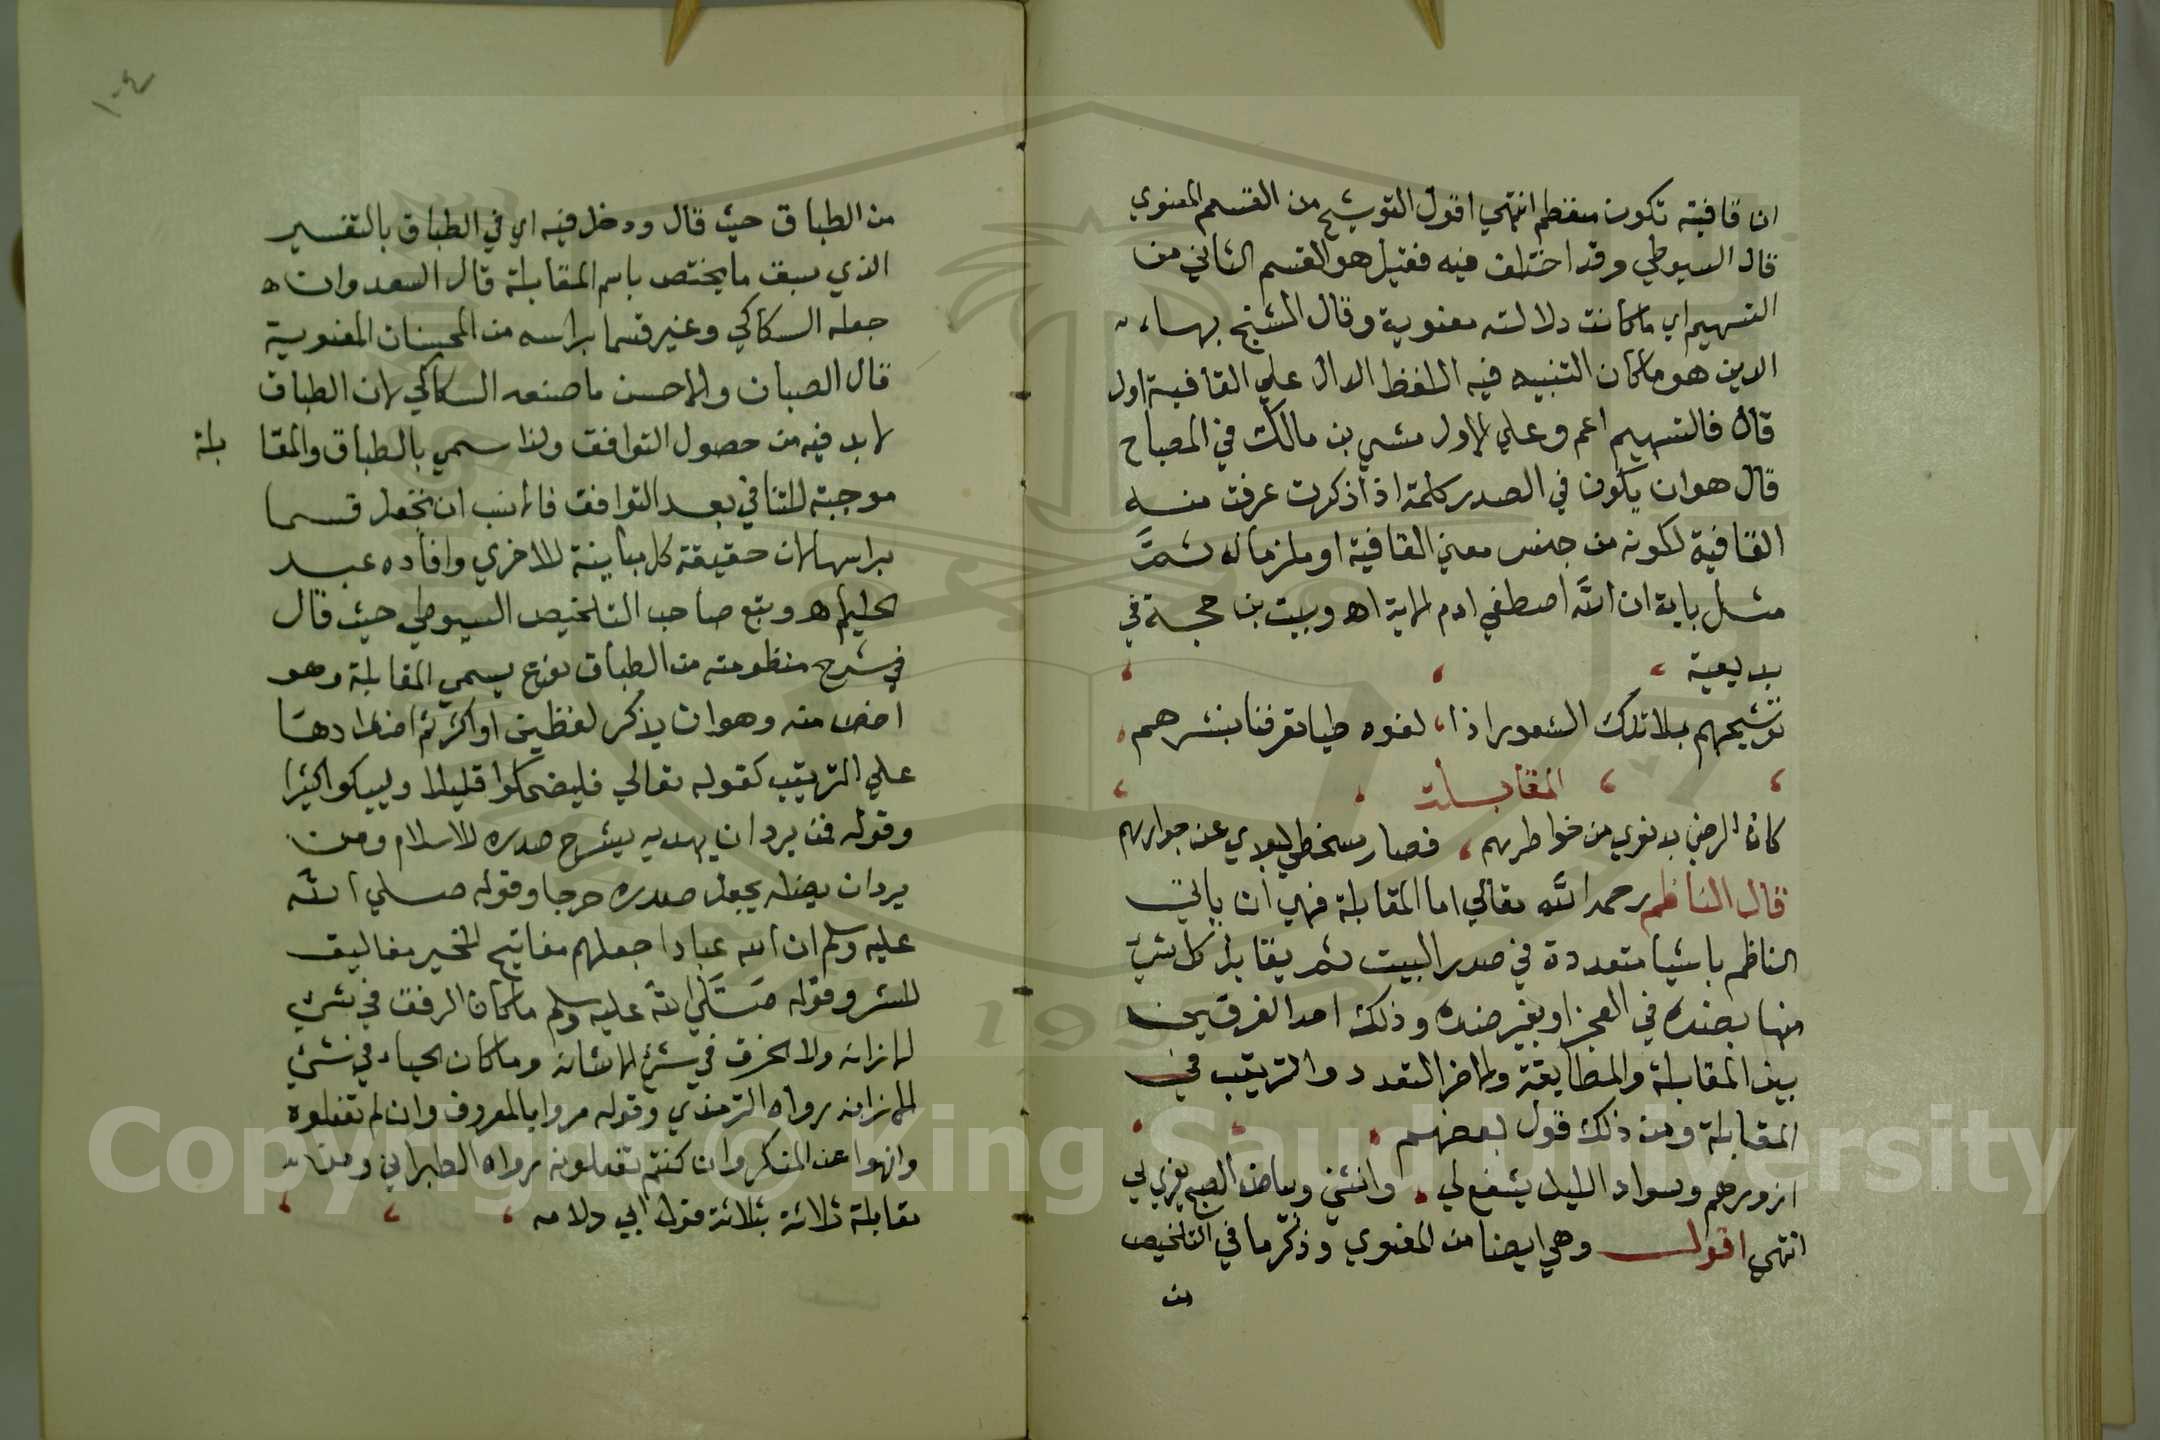 ان قافيته تكون منقطم انتهي اقول التوشيح من القسم المعنوي
قال السيوطي وقد اختلف فيه فقيل هو القسم الثاني من
التسهيم اي ما كانت دلالته معنوية وقال الشيخ بهاء
الدين هو ما كان التنبيه فيه اللفظ الدال علي القافية اول
قال فالتسهيم اعم وعلي الاول مشي بن مالك في المصباح
قال هو ان يكون في الصدر كلمة اذا ذكرت عرفت منه
القافية لكونه من جنس معني القافية او ملزما له ثمَّ
مثل باية ان اللّه اصطفي ادم الاية اه وبيت بن حجة في
بديعية
توشيحهم بملا تلك الشعور اذا لفوه طيا تعرفنا بنشرهم
المقابلة
كان الرضي بدنوي من خواطرهم فصار سخطي لبعدي عن جوارهم
قال الناظم رحمه اللّه تعالي اما المقابلة فهي ان ياتي
الناظم باشيا متعددة في صدر البيت ثم يقابل كل شيئ
منها بضده في العجز او بغير ضده وذلك احد الفرقين
بين المقابلة والمطابقة والاخر التعدد والترتيب في
المقابلة ومن ذلك قول بعضهم
ازورهم وسواد الليل يشفع لي وانثني وبياض الصبح يغري بي
انتهي اقول وهي ايضا من المعنوي وذكر ما في التلخيص
من
١٠٤
من الطباق حيث قال ودخل فيه اي في الطباق بالتفسير
الذي سبق ما يختص باسم المقابلة قال السعد وان ه
جعله السكاكي وغيره قسما براسه من المحسنات المعنوية
قال الصبان والاحسن ما صنعه السكاكي لان الطباق
لا بد فيه من حصول التوافق ولذا سمي بالطباق والمقا بلة
موجبة للتنافي بعد التوافق فالانسب ان تجعل قسما
براسها لان حقيقة كل مباينة للاخري وافاده عبد
الحليم اه وتبع صاحب التلخيص السيوطي حيث قال
في شرح منظومته من الطباق نوع يسمي المقابلة وهو
اخص منه وهو ان يذكر لفظين او اكثر ثم اضدادها
علي الترتيب كقوله تعالي فليضحكوا قليلا وليبكوا كثيرا
وقوله فمن يرد ان يهديه يشرح صدره للاسلام ومن
يرد ان يضله يجعل صدره حرجا وقوله صلي اللّه
عليه وسلم ان لله عبادا جعلهم مفاتيح للخير مغاليق
للشر وقوله صَلَّي اللّه عليه وسلم ما كان الرفق في شيئ
الا زانه ولا الخرق في شيئ الا شانه وما كان الحياء في شيئ
الا زانه رواه الترمذي وقوله مروا بالمعروف وان لم تفعلوه
وانهوا عن المنكر وان كنتم تفعلونه رواه الطبراني ومن
مقابلة ثلاثة بثلاثة قول ابي دلامه
Copyright © King Saud University
1957